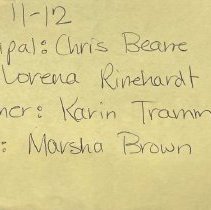 11-12
ipal: Chris Beane
Lorena Rinehardt
ner: Karin Tramm
: Marsha Brown